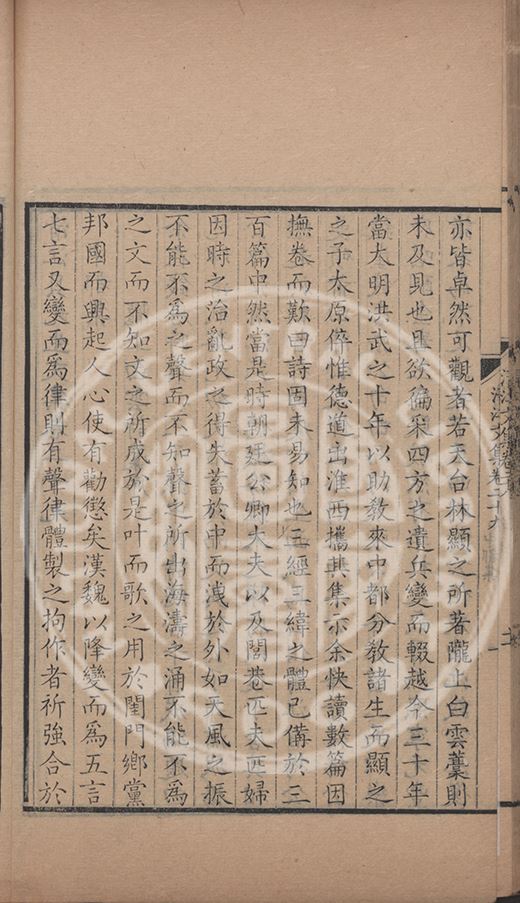 亦皆卓然可觀者若天台林顯之所著隴上白雲藁則
未及見也且欲徧采四方之遺兵變而輟越今三十年
當大明洪武之十年以助教來中都分教諸生而顯之
之子太原倅惟德道出淮西攜其集示余快讀數篇因
撫卷而歎曰詩固未易知也三經三緯之體已備於三
百篇中然當是時朝廷公卿大夫以及閭巷匹夫匹婦
因時之治亂政之得失蓄於中而洩於外如天風之振
不能不爲之聲而不知聲之所出海濤之涌不能不爲
之文而不知文之所成於是叶而歌之用於閨門鄉黨
邦國而興起人心使有勸懲矣漢魏以降變而爲五言
七言又變而爲律則有聲律體製之拘作者祈強合於
集卷二十九